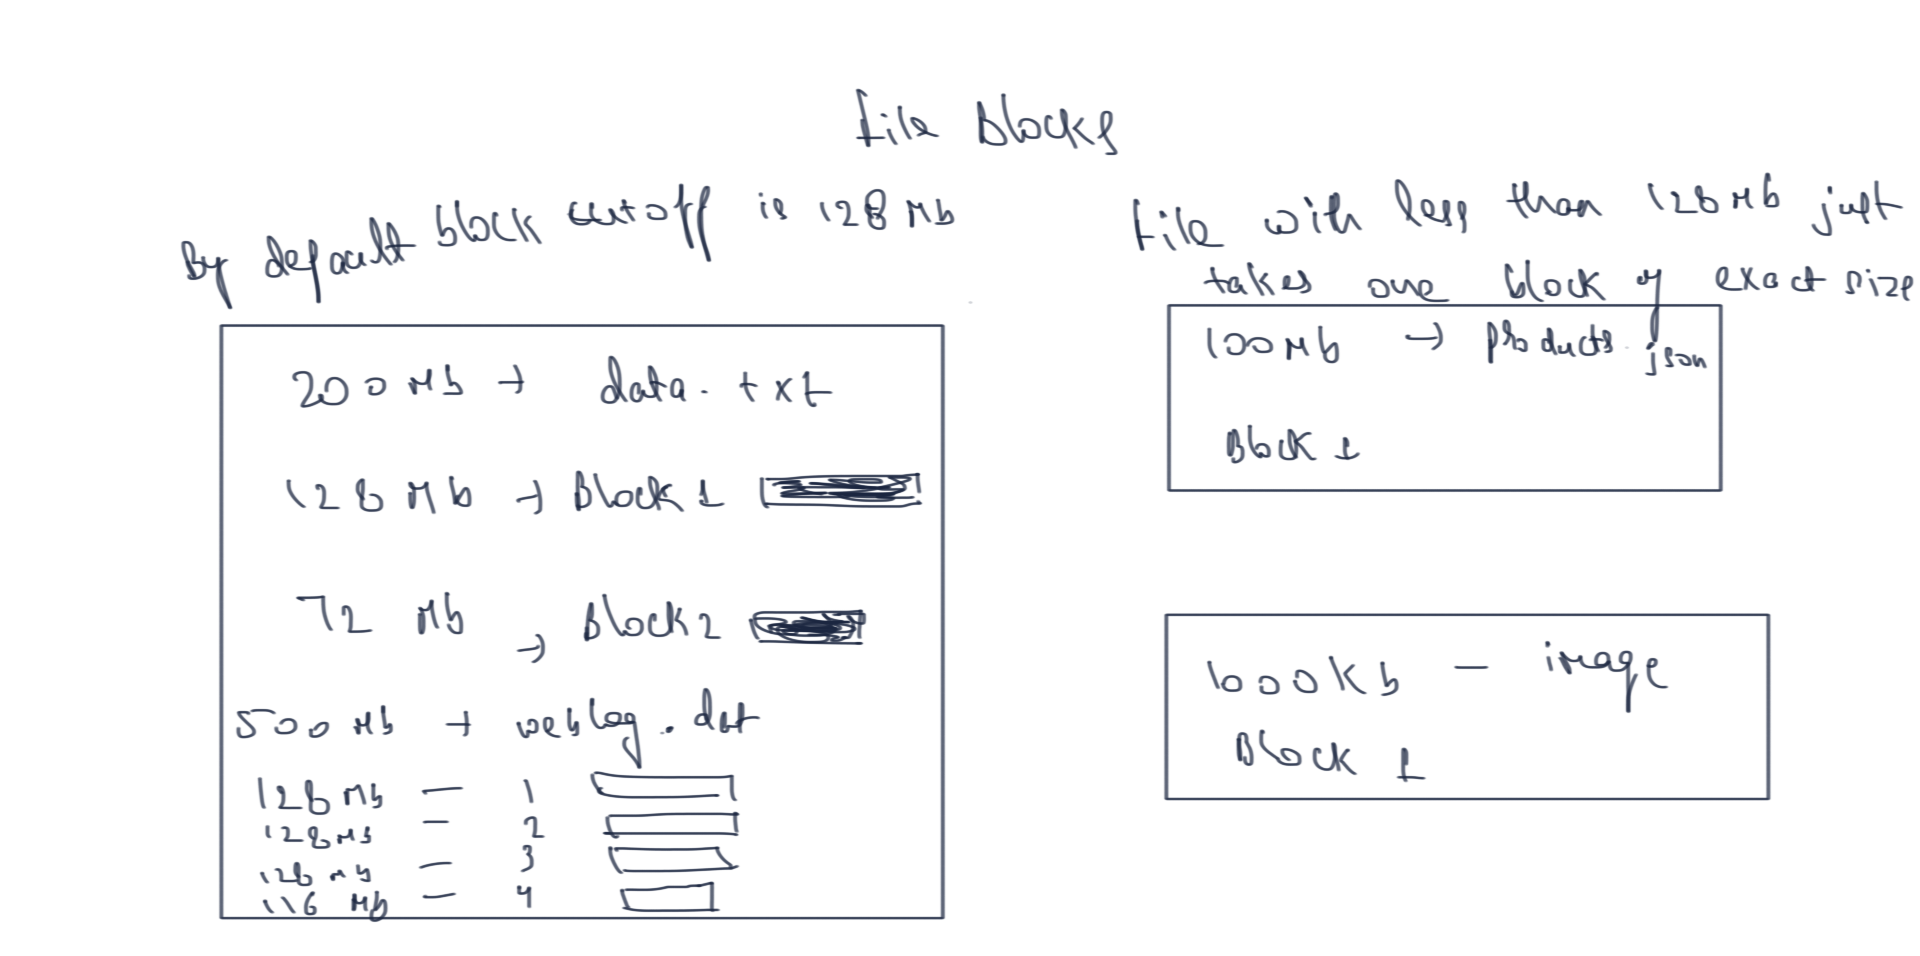 File Blocks
By default block cutoff is 128 Mb
200 Mb → data.txt
128 Mb → Block 1
72 Mb → Block 2
500 Mb → weblog.dat
128 Mb - 1
128 Mb - 2
128 Mb - 3
116 Mb - 4
File with less than 128 Mb just
takes one block of exact size
100 Mb → products.json
Block 1
1000 Kb - image
Block 1